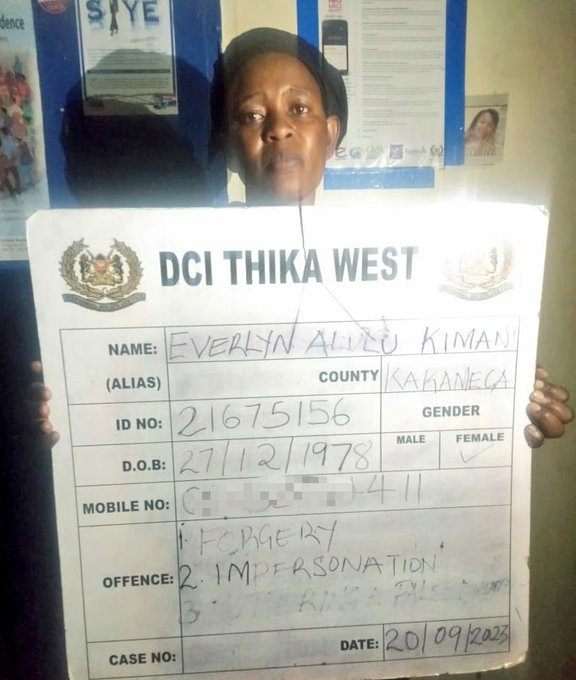 dence
S YE
DCI THIKA WEST
NAME: EVERLYN ALULU KIMANI
(ALIAS) COUNTY KAKAMEGA
ID NO: 21675156 GENDER
MALE FEMALE ✓
D.O.B: 27/12/1978
MOBILE NO: 411
OFFENCE: 1. FORGERY
2. IMPERSONATION
3. UTTERING A FALSE
CASE NO: DATE: 20/09/2023